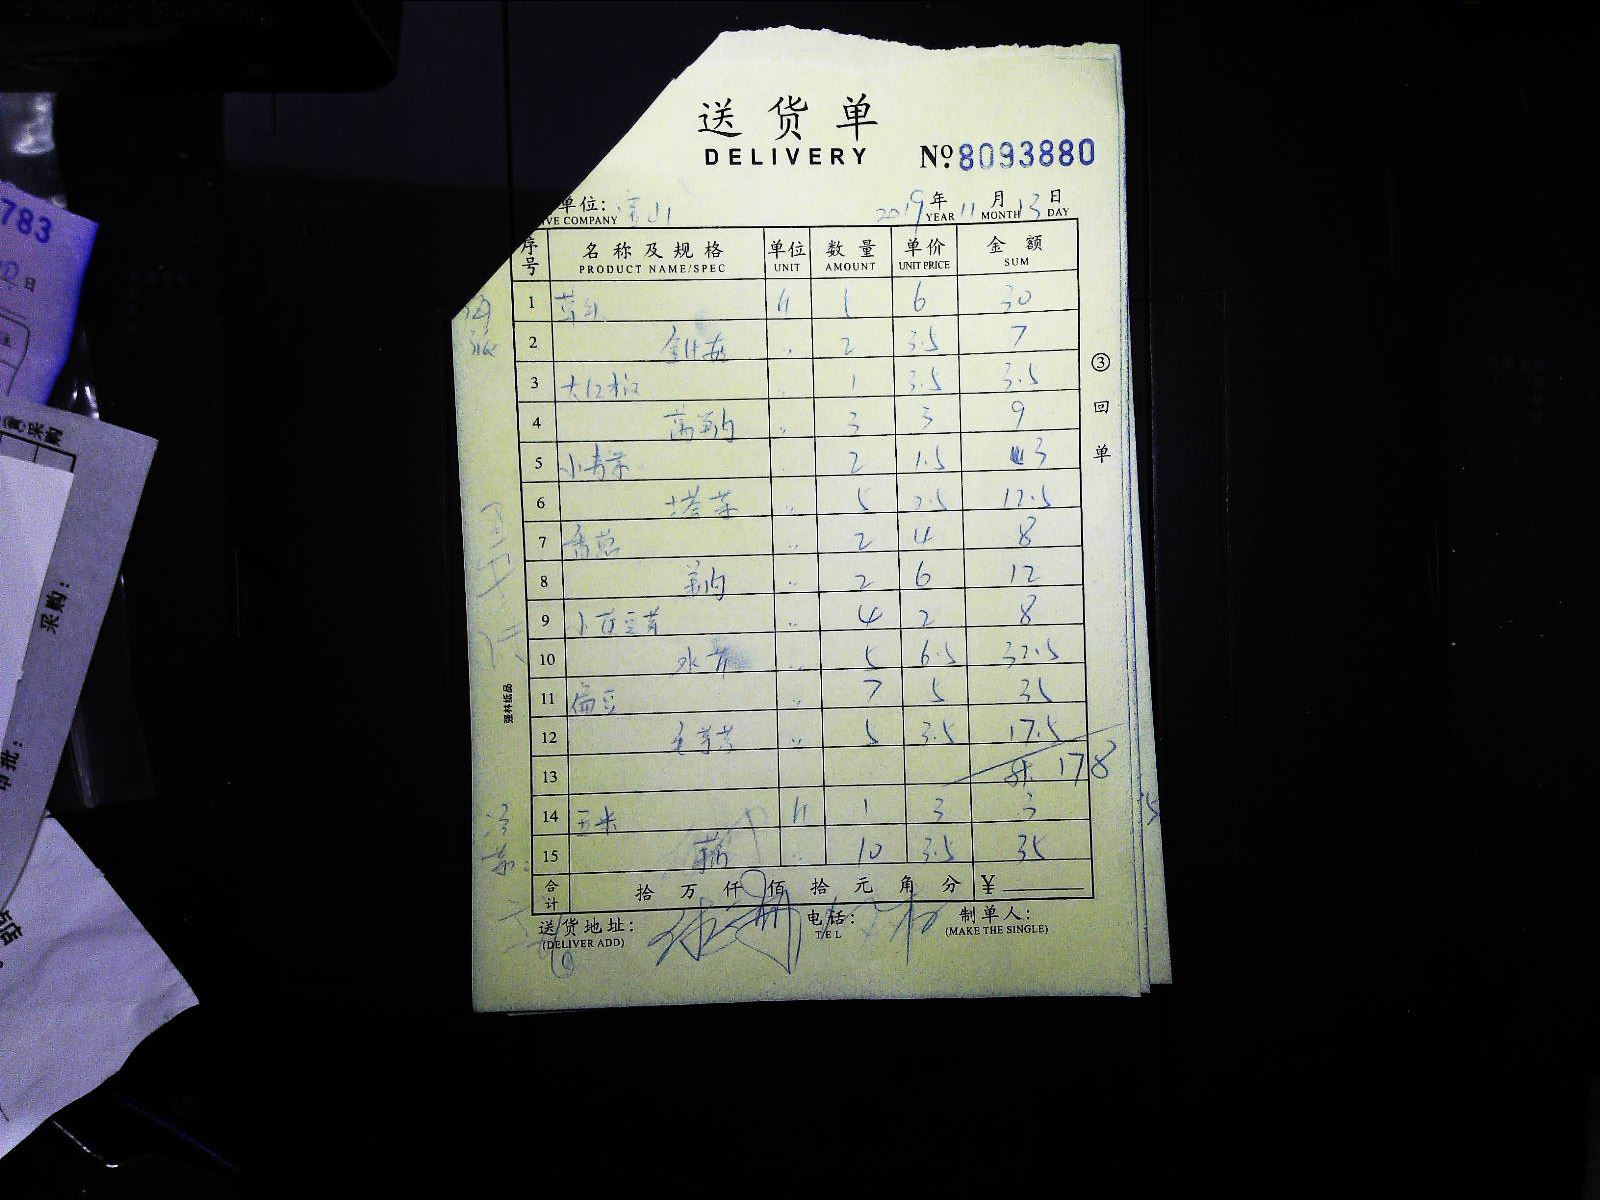 送货单
DELIVERY
№ 8093880
单位：宝山 2019年11月13日
VE COMPANY YEAR MONTH DAY
序号 名称及规格 单位 数量 单价 金额
PRODUCT NAME/SPEC UNIT AMOUNT UNIT PRICE SUM
1 5 6 30
2 金针菇 〃 2 3.5 7
3 大红椒 1 3.5 3.5
4 〃 3 3 9
5 小青菜 2 1.5 3
6 塔菜 〃 5 2.5 12.5
7 香葱 〃 2 4 8
8 〃 2 6 12
9 小黄豆芽 〃 4 2 8
10 水芹 〃 5 6.5 32.5
11 扁豆 〃 7 5 35
12 毛芋艿 〃 5 3.5 17.5
13 178
14 玉米 1 3 3
15 〃 10 3.5 35
合计 拾万仟佰拾元角分 ¥
送货地址： 电话： 制单人：
(DELIVER ADD) TEL (MAKE THE SINGLE)
③回单
强林纸品
783
日
采购
采购：
审批：